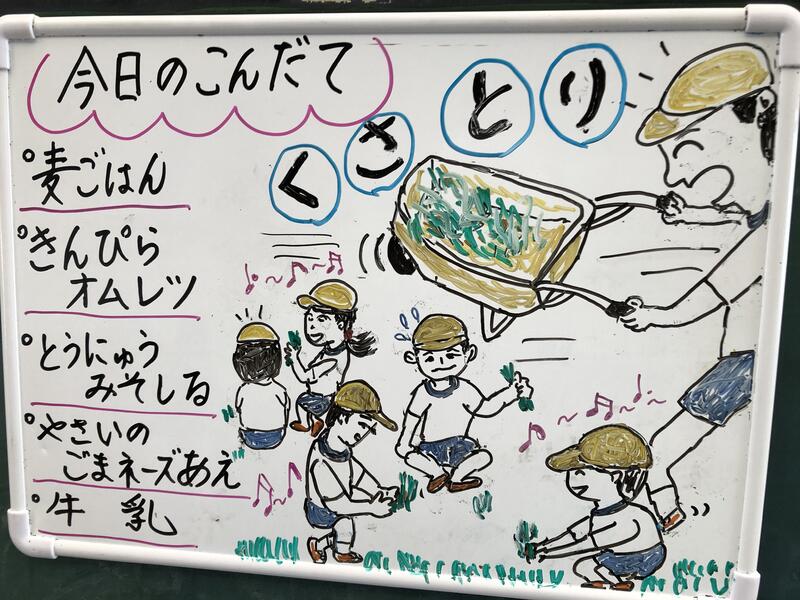 今日のこんだて
くさとり
麦ごはん
きんぴら
オムレツ
とうにゅう
みそしる
やさいの
ごまネーズあえ
牛乳